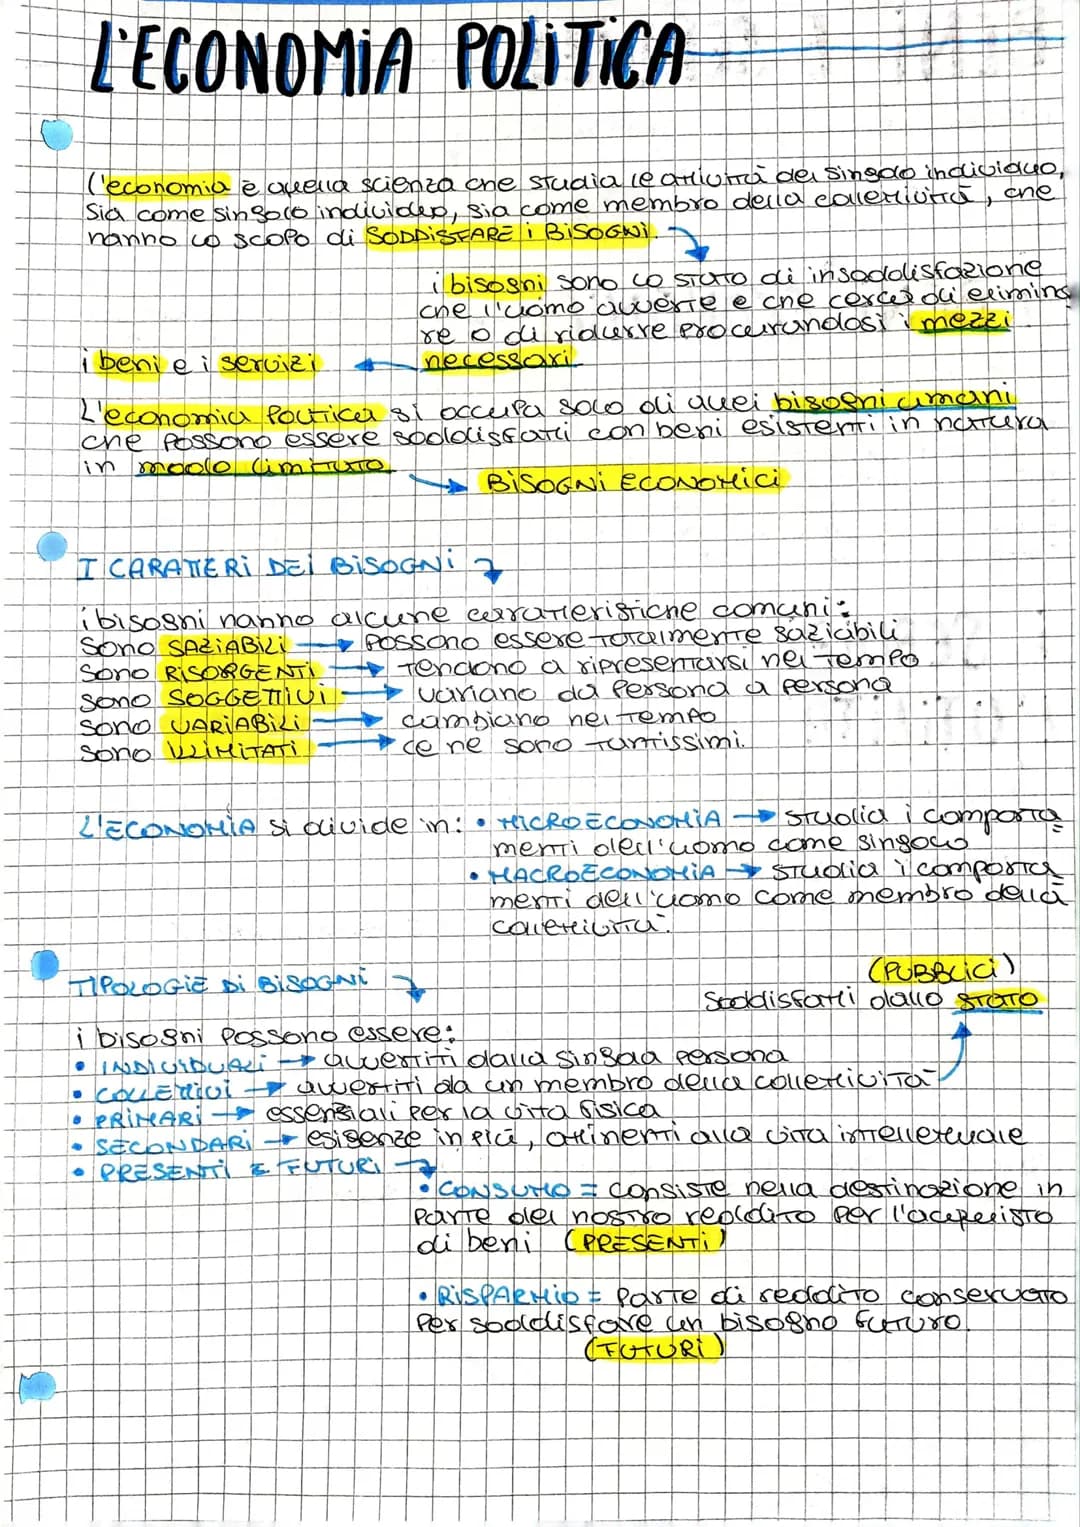 L'ECONOMIA POLITICA
l'economia è quella scienza che studia le attività del singolo individuo,
sia come singolo individuo, sia come membro della collettività, che
hanno lo scopo di SODDISFARE i BISOGNI.
i bisogni sono lo stato di insoddisfazione
che l'uomo avverte e che cerca di elimina
re o di ridurre procurandosi i mezzi
necessari
i beni e i servizi
L'economia politica si occupa solo di quei bisogni umani
che possono essere soddisfatti con beni esistenti in natura
in modo limitato
BISOGNI ECONOMICI
I CARATTERI DEI BISOGNI
i bisogni hanno alcune caratteristiche comuni:
Sono SAZIABILI → possono essere totalmente saziabili
Sono RISORGENTI → tendono a ripresentarsi nel tempo
Sono SOGGETTIVI → variano da persona a persona
Sono VARIABILI → cambiano nel tempo
Sono ILLIMITATI → ce ne sono tantissimi.
L'ECONOMIA si divide in: • MICROECONOMIA → studia i comporta
menti dell'uomo come singolo
• MACROECONOMIA → studia i comporta
menti dell'uomo come membro della
collettività.
TIPOLOGIE DI BISOGNI
(PUBBLICI)
soddisfatti dallo STATO
i bisogni possono essere:
• INDIVIDUALI → avvertiti dalla singola persona
• COLLETTIVI → avvertiti da un membro della collettività
• PRIMARI → essenziali per la vita fisica
• SECONDARI → esigenze in più, attinenti alla vita intellettuale
• PRESENTI E FUTURI
• CONSUMO = consiste nella destinazione in
parte del nostro reddito per l'acquisto
di beni (PRESENTI)
• RISPARMIO = parte di reddito conservato
per soddisfare un bisogno futuro.
(FUTURI)